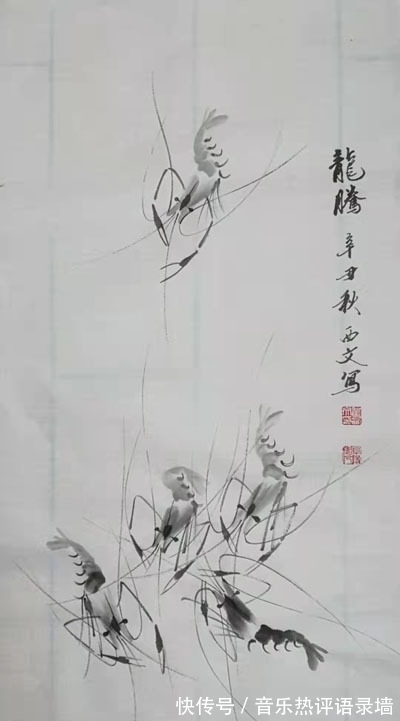 龍騰 辛丑秋 西文寫
快传号 / 音乐热评语录墙